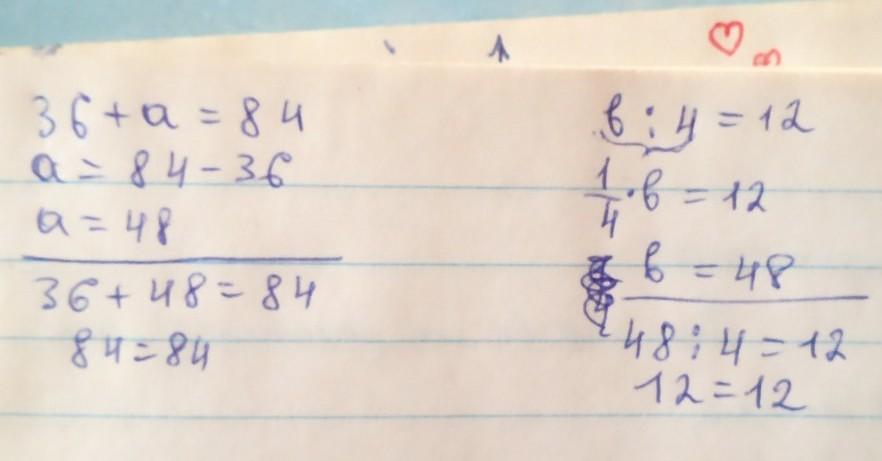 36 + a = 84
a = 84 - 36
a = 48
36 + 48 = 84
84 = 84
b : 4 = 12
1/4 · b = 12
b = 48
48 : 4 = 12
12 = 12